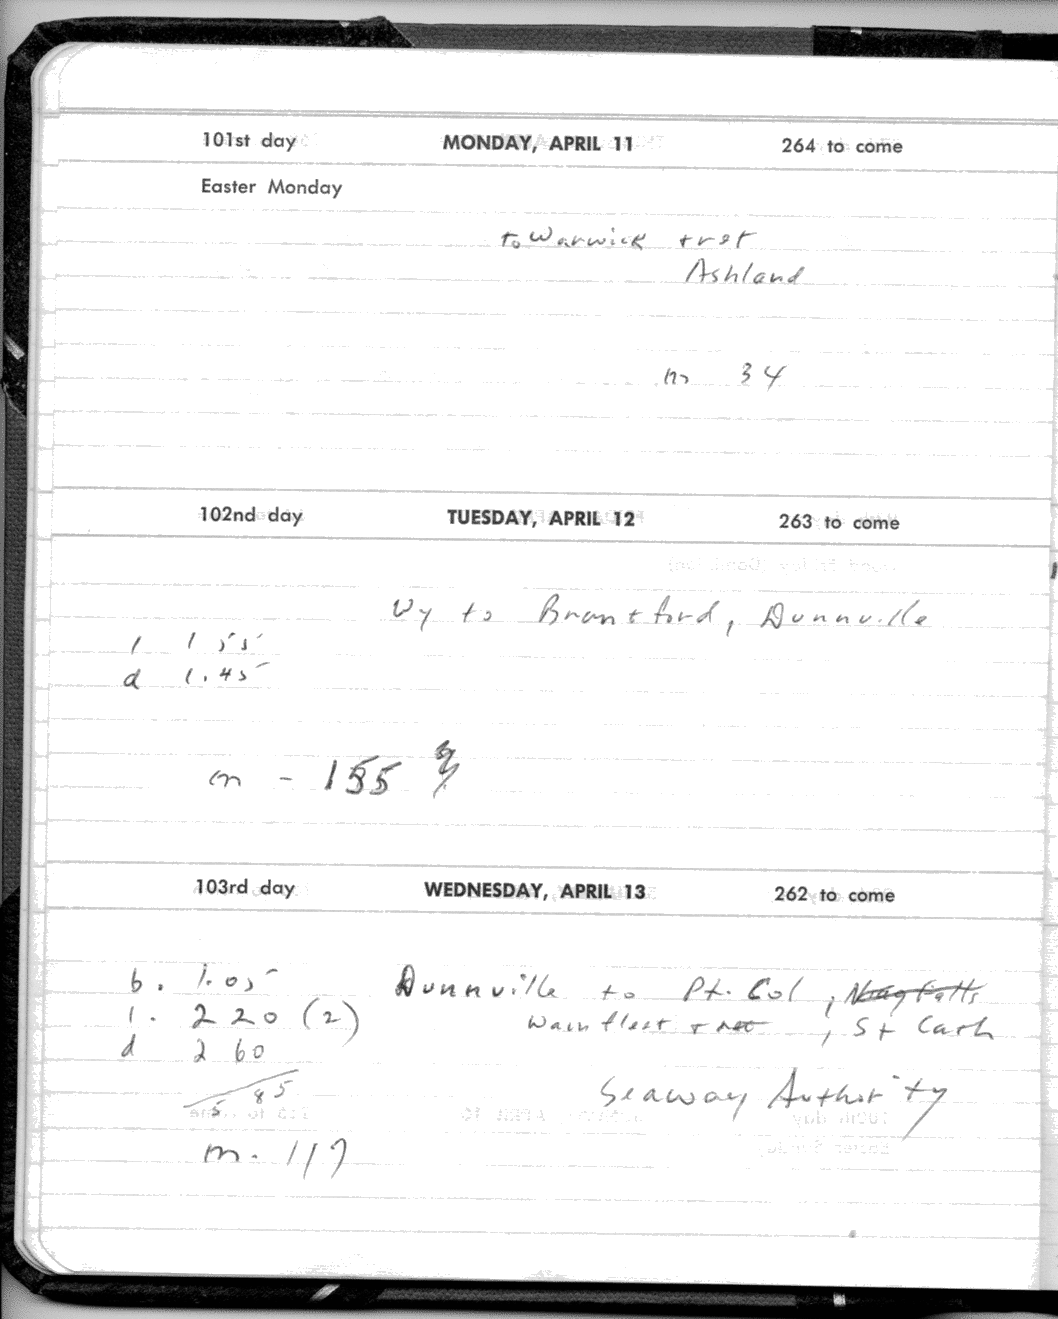 101st day MONDAY, APRIL 11 264 to come
Easter Monday
to Warwick + ret
Ashland
m 34
102nd day TUESDAY, APRIL 12 263 to come
Wy to Brantford, Dunnville
l 1 55
d 1.45
m - 155
103rd day WEDNESDAY, APRIL 13 262 to come
b. 1.05 Dunnville to Pt. Col, Niag Falls
l. 2 20 (2) Wainfleet + ret, St Cath
d 2 60
Seaway Authority
5 85
m. 117